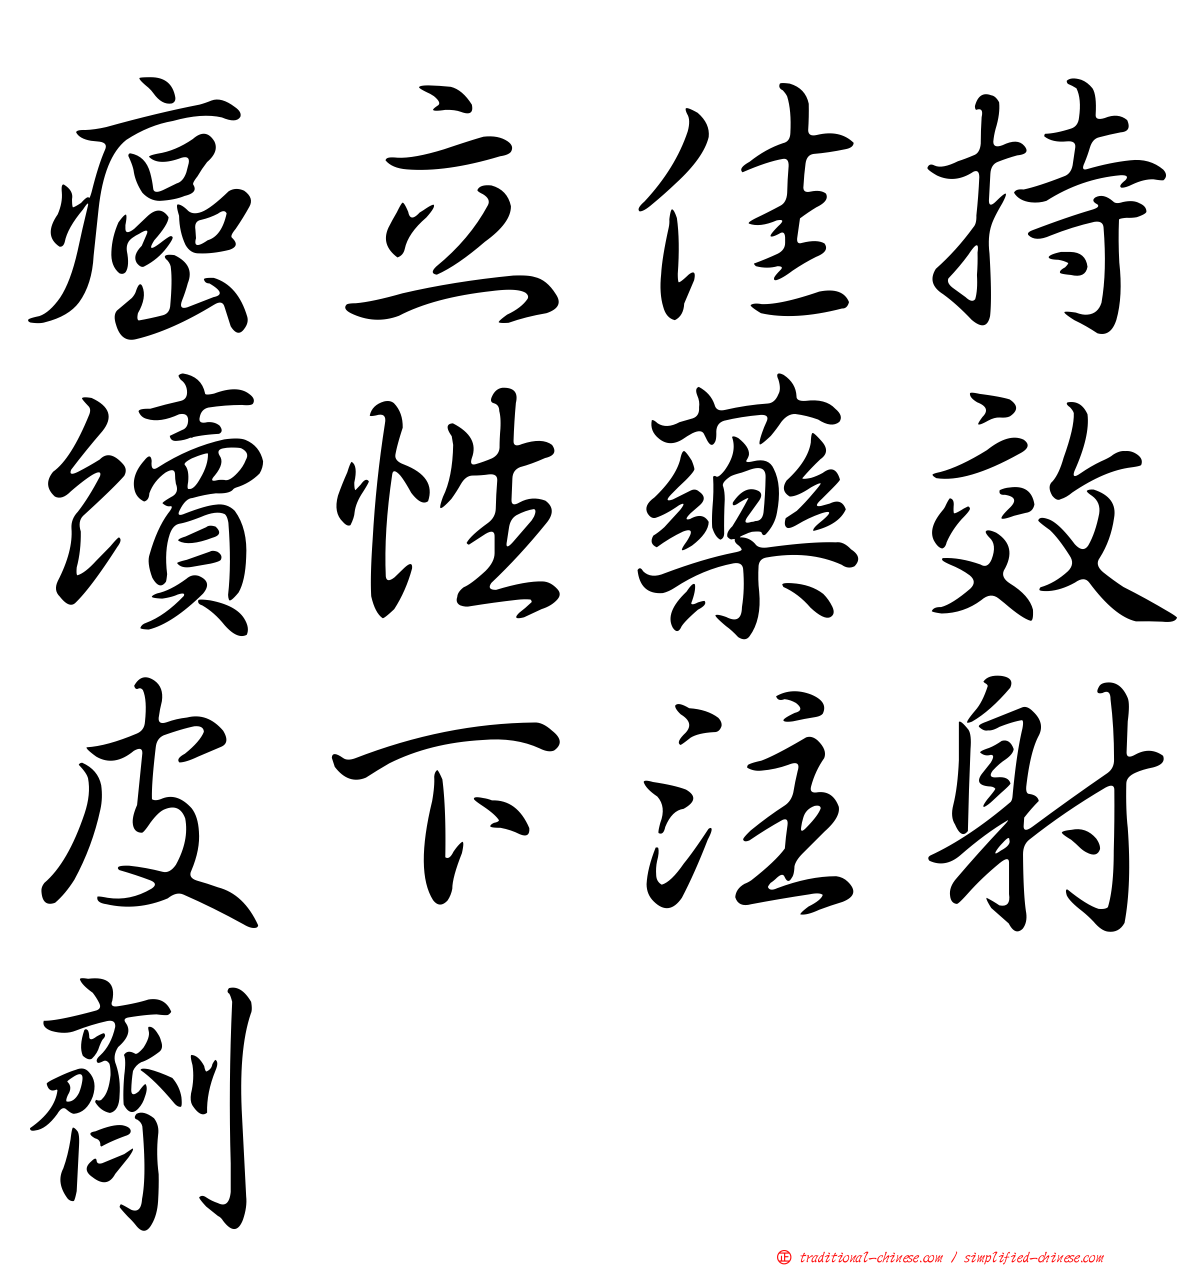 癌立佳持
續性藥效
皮下注射
劑
㊣ traditional-chinese.com / simplified-chinese.com